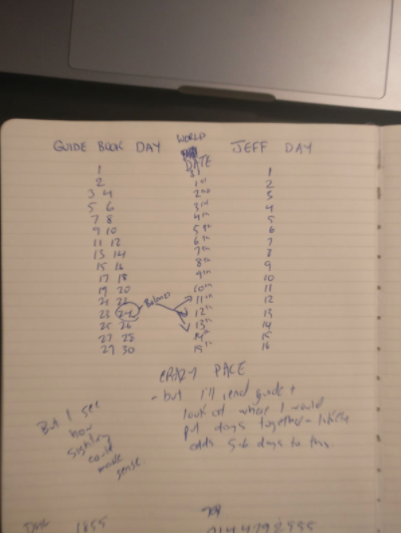 WORLD
GUIDE BOOK DAY DATE JEFF DAY
1 31 1
2 1st 2
3 4 2nd 3
5 6 3rd 4
7 8 4th 5
9 10 5th 6
11 12 6th 7
13 14 7th 8
15 16 8th 9
17 18 9th 10
19 20 10th 11
21 22 11th 12
23 24 12th 13
25 26 13th 14
27 28 14th 15
29 30 15th 16
CRAZY PACE
- but I'll read guide +
look at where I would
put days together -
adds days to this.
But I see
how
could
make
sense
1855